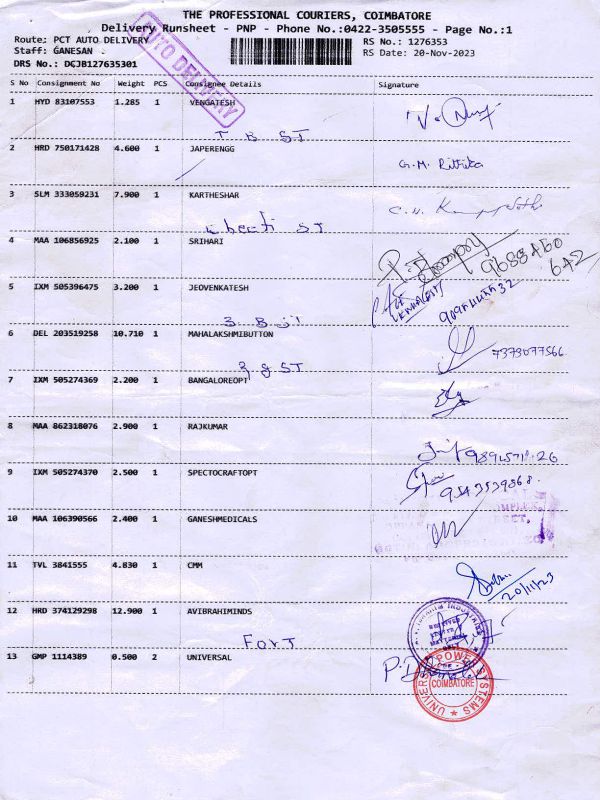 THE PROFESSIONAL COURIERS, COIMBATORE
Delivery Runsheet - PNP - Phone No.:0422-3505555 - Page No.:1
Route: PCT AUTO DELIVERY
RS No.: 1276353
Staff: GANESAN .
RS Date: 20-Nov-2023
DRS No.: DCJB127635301
AUTO DELIVERY
S No Consignment No Weight PCS Consignee Details Signature
1 HYD 83107553 1.285 1 VENGATESH
T B ST
2 HRD 750171428 4.600 1 JAPERENGG G.M. Rithika
3 SLM 333059231 7.900 1 KARTHESHAR
ST
4 MAA 106856925 2.100 1 SRIHARI
9688460
642
5 IXM 505396475 3.200 1 JEOVENKATESH
3 B
6 DEL 203519258 10.710 1 MAHALAKSHMIBUTTON
7373077566
3 & ST
7 IXM 505274369 2.200 1 BANGALOREOPT
8 MAA 862318076 2.900 1 RAJKUMAR
9 IXM 505274370 2.500 1 SPECTOCRAFTOPT
9543539568.
10 MAA 106390566 2.400 1 GANESHMEDICALS
11 TVL 3841555 4.830 1 CMM
20/11/23
12 HRD 374129298 12.900 1 AVIBRAHIMINDS
Fort
13 GMP 1114389 0.500 2 UNIVERSAL
UNIVERSAL POWER SYSTEMS
COIMBATORE